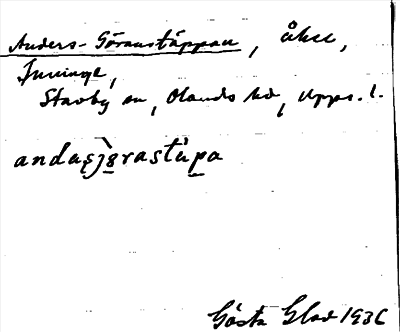 Anders-Göranstäppan, åker,
Inninge,
Stavby sn, Olands hd, Upps. l.
andaşjɵrastäpa
Gösta Glad 1936